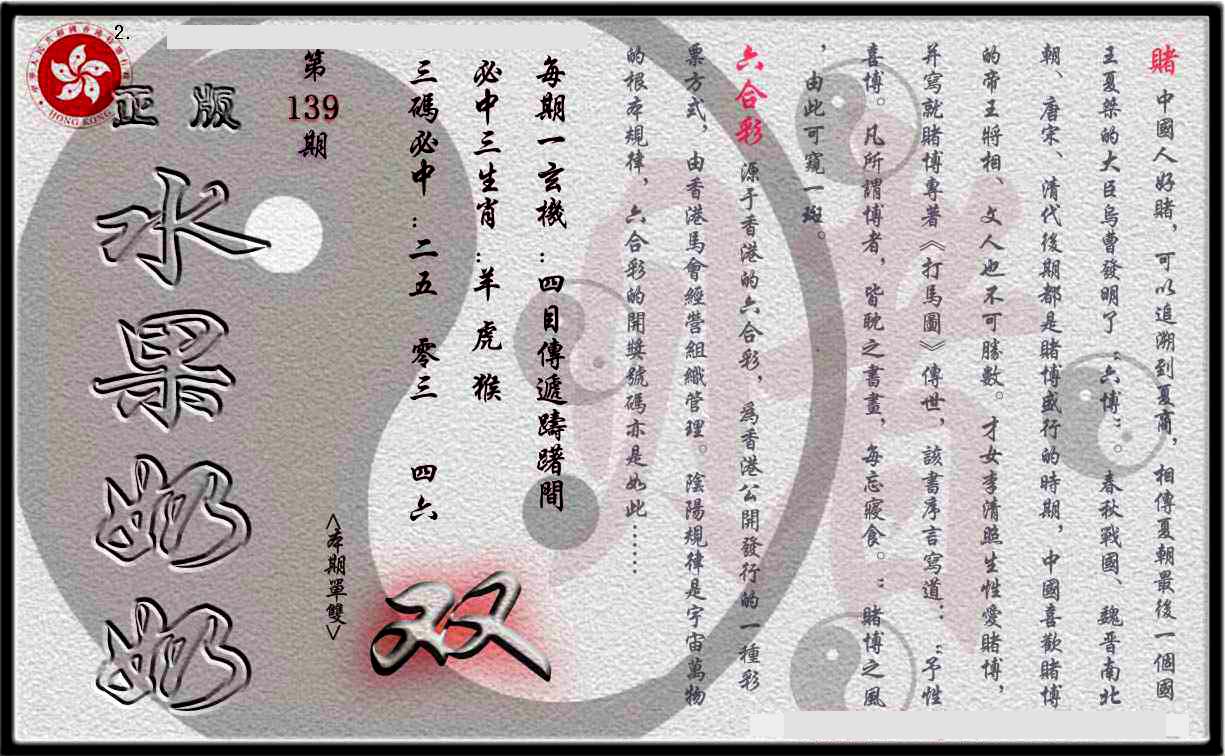 賭 中國人好賭，可以追溯到夏商，相傳夏朝最後一個國
王夏桀的大臣烏曹發明了“六博”。春秋戰國、魏晋南北
朝、唐宋、清代後期都是賭博盛行的時期，中國喜歡賭博
的帝王將相、文人也不可勝數。才女李清照生性愛賭博，
并寫就賭博專著《打馬圖》傳世，該書序言寫道：“予性
喜博。凡所謂博者，皆耽之書畫，每忘寢食。”賭博之風
，由此可窺一斑。
六合彩 源于香港的六合彩，爲香港公開發行的一種彩
票方式，由香港馬會經營組織管理。陰陽規律是宇宙萬物
的根本規律，六合彩的開獎號碼亦是如此……
每期一玄機：四目傳遞躊躇間
必中三生肖：羊 虎 猴
三碼必中：二五 零三 四六
双
<本期單雙>
第
139
期
2.
正 版
水果奶奶
HONG KONG